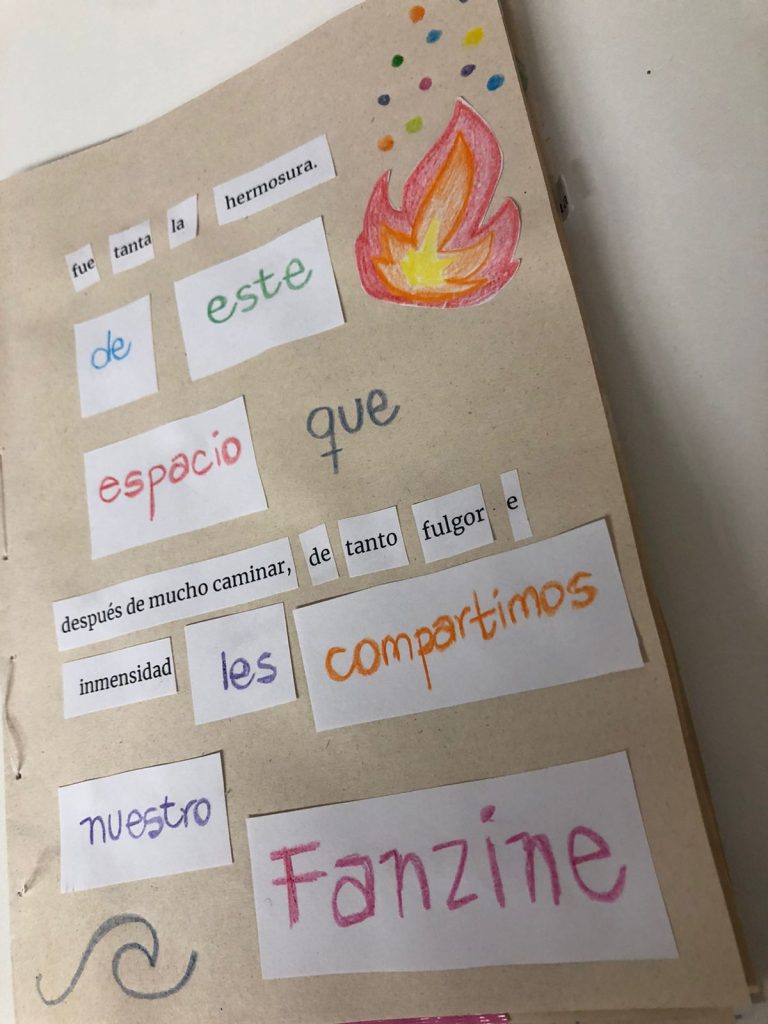 fue tanta la hermosura.
de este
espacio que
después de mucho caminar, de tanto fulgor e
inmensidad les compartimos
nuestro Fanzine